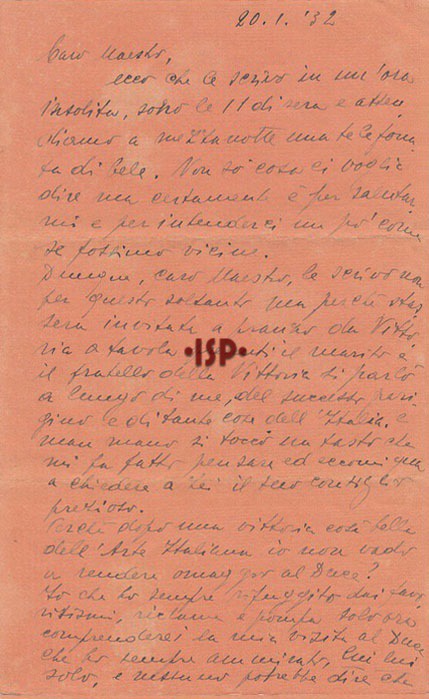 20.1.'32
Caro Maestro,
ecco che le scrivo in un'ora
insolita, sono le 11 di sera e atten
diamo a mezzanotte una telefona
ta di Lele. Non so cosa ci voglia
dire ma certamente è per salutar
mi e per intenderci un po' come
se fossimo vicine.
Dunque, caro Maestro, le scrivo non
per questo soltanto ma perché sta
sera invitata a pranzo da Vitto
ria a tavola il marito e
•ISP•
il fratello della Vittoria si parlò
a lungo di me, del successo pari
gino e di tante cose dell'Italia. E
man mano si toccò un tasto che
mi fa fatto pensare ed eccomi qua
a chiedere a Lei il suo consiglio
prezioso.
Perché dopo una vittoria così bella
dell'Arte Italiana io non vado
a rendere omaggio al Duce?
Io che ho sempre rifuggito dai favo
ritismi, reclame e pompa solo ora
comprenderei la mia visita al Duce
che ho sempre ammirato, lui lui
solo, e nessuno potrebbe dire che